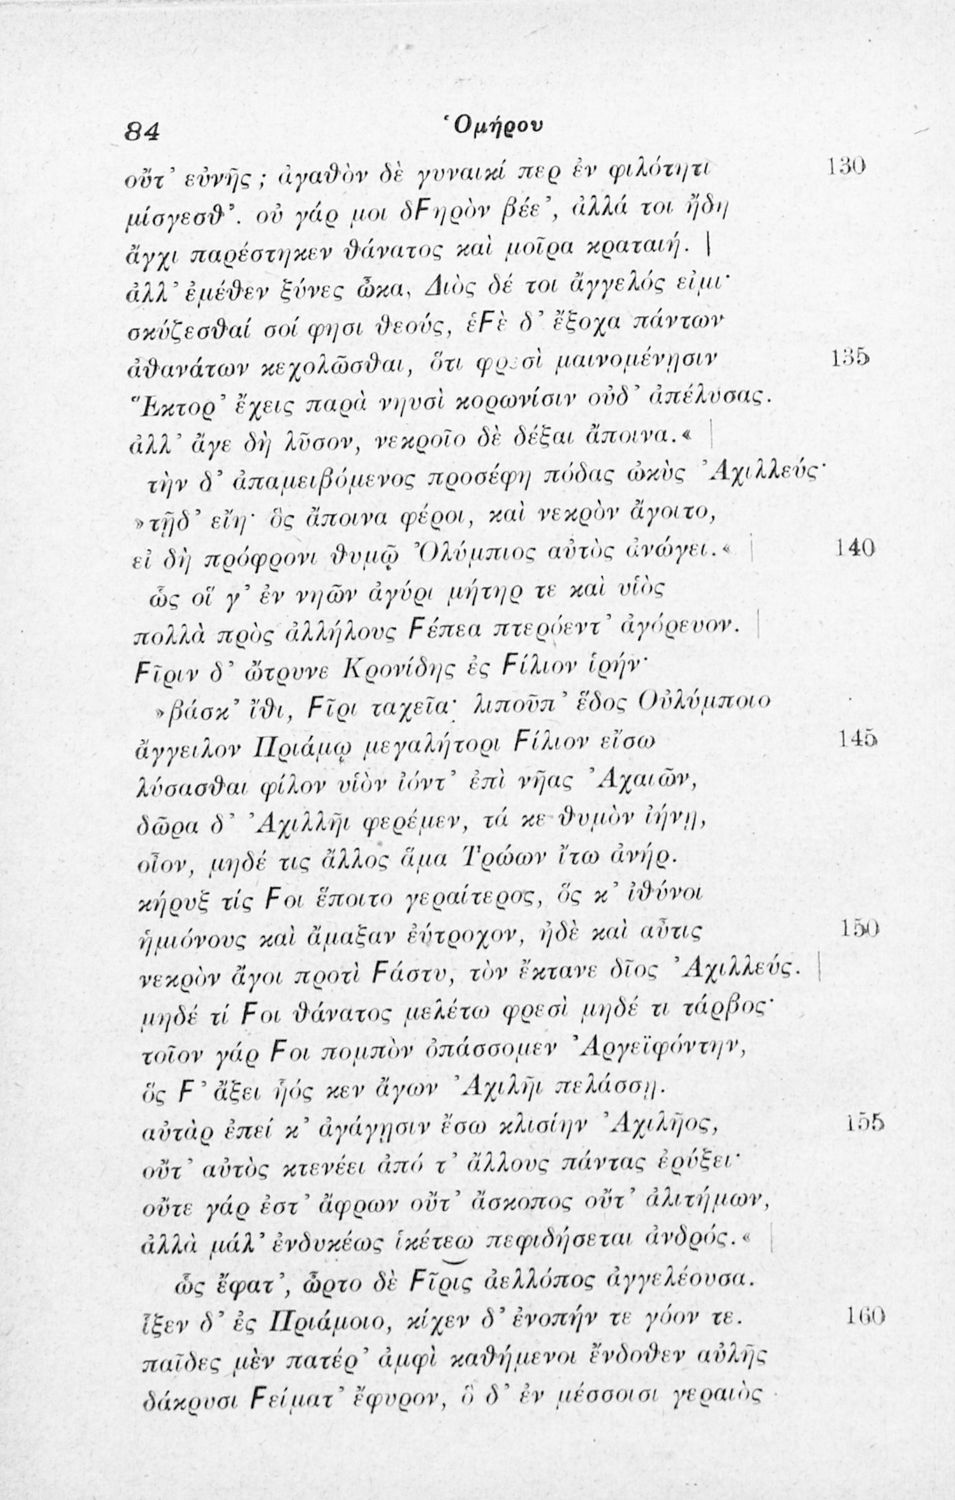 84
Ὁμήρου
οὔτ’ εὐνῆς; ἀγαθὸν δὲ γυναικί περ ἐν φιλότητι 130
μίσγεσθ’. οὐ γάρ μοι δϜηρὸν βέε’, ἀλλά τοι ἤδη
ἄγχι παρέστηκεν θάνατος καὶ μοῖρα κραταιή. |
ἀλλ’ ἐμέθεν ξύνες ὦκα, Διὸς δέ τοι ἄγγελός εἰμι·
σκύζεσθαί σοί φησι θεούς, ἑϜὲ δ’ ἔξοχα πάντων
ἀθανάτων κεχολῶσθαι, ὅτι φρεσὶ μαινομένῃσιν 135
Ἕκτορ’ ἔχεις παρὰ νηυσὶ κορωνίσιν οὐδ’ ἀπέλυσας.
ἀλλ’ ἄγε δὴ λῦσον, νεκροῖο δὲ δέξαι ἄποινα.« |
τὴν δ’ ἀπαμειβόμενος προσέφη πόδας ὠκὺς Ἀχιλλεύς·
»τῇδ’ εἴη· ὃς ἄποινα φέροι, καὶ νεκρὸν ἄγοιτο,
εἰ δὴ πρόφρονι θυμῷ Ὀλύμπιος αὐτὸς ἀνώγει.« | 140
ὣς οἵ γ’ ἐν νηῶν ἀγύρι μήτηρ τε καὶ υἱὸς
πολλὰ πρὸς ἀλλήλους Ϝέπεα πτερόεντ’ ἀγόρευον. |
Ϝῖριν δ’ ὤτρυνε Κρονίδης ἐς Ϝίλιον ἱρήν·
»βάσκ’ ἴθι, Ϝῖρι ταχεῖα· λιποῦπ’ ἕδος Οὐλύμποιο
ἄγγειλον Πριάμῳ μεγαλήτορι Ϝίλιον εἴσω 145
λύσασθαι φίλον υἱὸν ἰόντ’ ἐπὶ νῆας Ἀχαιῶν,
δῶρα δ’ Ἀχιλλῆι φερέμεν, τά κε θυμὸν ἰήνῃ,
οἶον, μηδέ τις ἄλλος ἅμα Τρώων ἴτω ἀνήρ.
κήρυξ τίς Ϝοι ἕποιτο γεραίτερος, ὅς κ’ ἰθύνοι
ἡμιόνους καὶ ἄμαξαν ἐύτροχον, ἠδὲ καὶ αὖτις 150
νεκρὸν ἄγοι προτὶ Ϝάστυ, τὸν ἔκτανε δῖος Ἀχιλλεύς. |
μηδέ τί Ϝοι θάνατος μελέτω φρεσὶ μηδέ τι τάρβος·
τοῖον γάρ Ϝοι πομπὸν ὀπάσσομεν Ἀργεϊφόντην,
ὅς Ϝ’ ἄξει ἧός κεν ἄγων Ἀχιλῆι πελάσσῃ.
αὐτὰρ ἐπεί κ’ ἀγάγῃσιν ἔσω κλισίην Ἀχιλῆος, 155
οὔτ’ αὐτὸς κτενέει ἀπό τ’ ἄλλους πάντας ἐρύξει·
οὔτε γάρ ἐστ’ ἄφρων οὔτ’ ἄσκοπος οὔτ’ ἀλιτήμων,
ἀλλὰ μάλ’ ἐνδυκέως ἱκέτεω πεφιδήσεται ἀνδρός.« |
ὣς ἔφατ’, ὦρτο δὲ Ϝῖρις ἀελλόπος ἀγγελέουσα.
ἷξεν δ’ ἐς Πριάμοιο, κίχεν δ’ ἐνοπήν τε γόον τε. 160
παῖδες μὲν πατέρ’ ἀμφὶ καθήμενοι ἔνδοθεν αὐλῆς
δάκρυσι Ϝείματ’ ἔφυρον, ὃ δ’ ἐν μέσσοισι γεραιὸς